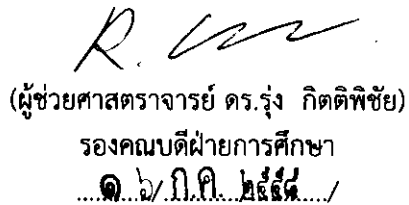 (ผู้ช่วยศาสตราจารย์ ดร.รุ่ง กิตติพิชัย)
รองคณบดีฝ่ายการศึกษา
๑ ๖/ ก.ค. ๒๕๕๘ /